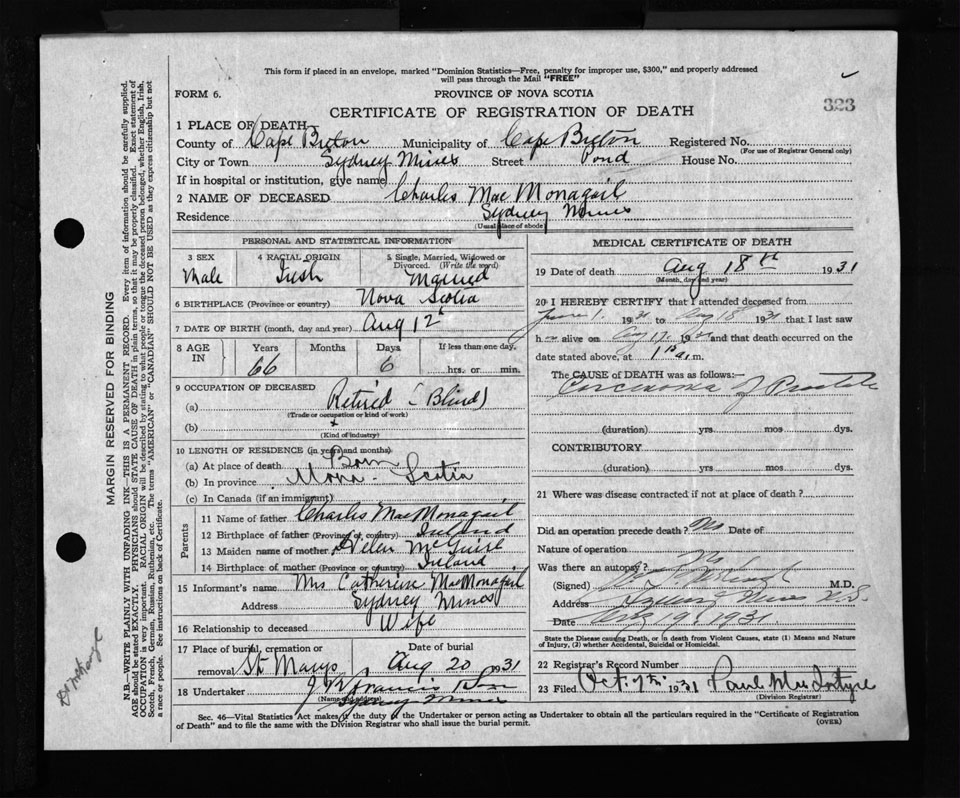 This form if placed in an envelope, marked "Dominion Statistics—Free, penalty for improper use, $300," and properly addressed
will pass through the Mail "FREE"
FORM 6.
PROVINCE OF NOVA SCOTIA
323
CERTIFICATE OF REGISTRATION OF DEATH
1 PLACE OF DEATH
County of Cape Breton Municipality of Cape Breton Registered No.
(For use of Registrar General only)
City or Town Sydney Mines Street Pond House No.
If in hospital or institution, give name
2 NAME OF DECEASED Charles MacMonagail
Residence Sydney Mines
(Usual place of abode)
PERSONAL AND STATISTICAL INFORMATION
3 SEX 4 RACIAL ORIGIN 5 Single, Married, Widowed or
Divorced. (Write the word)
Male Irish Married
6 BIRTHPLACE (Province or country) Nova Scotia
7 DATE OF BIRTH (month, day and year) Aug 12
8 AGE IN Years Months Days If less than one day.
66 6 hrs. or min.
9 OCCUPATION OF DECEASED
(a) Retired (Blind)
(Trade or occupation or kind of work)
(b)
(Kind of industry)
10 LENGTH OF RESIDENCE (in years and months)
(a) At place of death Born
(b) In province Nova Scotia
(c) In Canada (if an immigrant)
Parents
11 Name of father Charles MacMonagail
12 Birthplace of father (Province or country) Ireland
13 Maiden name of mother Helen McGuire
14 Birthplace of mother (Province or country) Ireland
15 Informant's name Mrs Catherine MacMonagail
Address Sydney Mines
16 Relationship to deceased Wife
17 Place of burial, cremation or Date of burial
removal St Marys Aug 20 1931
18 Undertaker
(Name and address)
Sydney Mines
MEDICAL CERTIFICATE OF DEATH
19 Date of death Aug 18th 1931
(Month, day and year)
20 I HEREBY CERTIFY that I attended deceased from
June 1. 1931 to Aug 18 1931 that I last saw
h alive on Aug 17, 19 and that death occurred on the
date stated above, at 1 a.m.
The CAUSE OF DEATH was as follows:
Carcinoma of Prostate
(duration) yrs mos dys.
CONTRIBUTORY
(duration) yrs mos dys.
21 Where was disease contracted if not at place of death?
Did an operation precede death? No Date of
Nature of operation
Was there an autopsy? No
(Signed) M.D.
Address Sydney Mines N.S.
Date 19. 1931.
State the Disease causing Death, or in death from Violent Causes, state (1) Means and Nature
of Injury, (2) whether Accidental, Suicidal or Homicidal.
22 Registrar's Record Number
23 Filed Oct. 7th 1931 Paul MacIntyre
(Division Registrar)
Sec. 46—Vital Statistics Act makes it the duty of the Undertaker or person acting as Undertaker to obtain all the particulars required in the "Certificate of Registration
of Death" and to file the same with the Division Registrar who shall issue the burial permit.
(OVER)
MARGIN RESERVED FOR BINDING
N.B.—WRITE PLAINLY WITH UNFADING INK—THIS IS A PERMANENT RECORD. Every item of information should be carefully supplied.
AGE should be stated EXACTLY. PHYSICIANS should STATE CAUSE OF DEATH in plain terms, so that it may be properly classified. Exact statement of
OCCUPATION is very important. RACIAL ORIGIN will be described by stating to what people or tongue the deceased person belonged, whether English, Irish,
Scotch, French, German, Russian, Ruthenian, etc. The terms "AMERICAN" or "CANADIAN" SHOULD NOT BE USED as they express citizenship but not
a race or people. See instructions on back of Certificate.